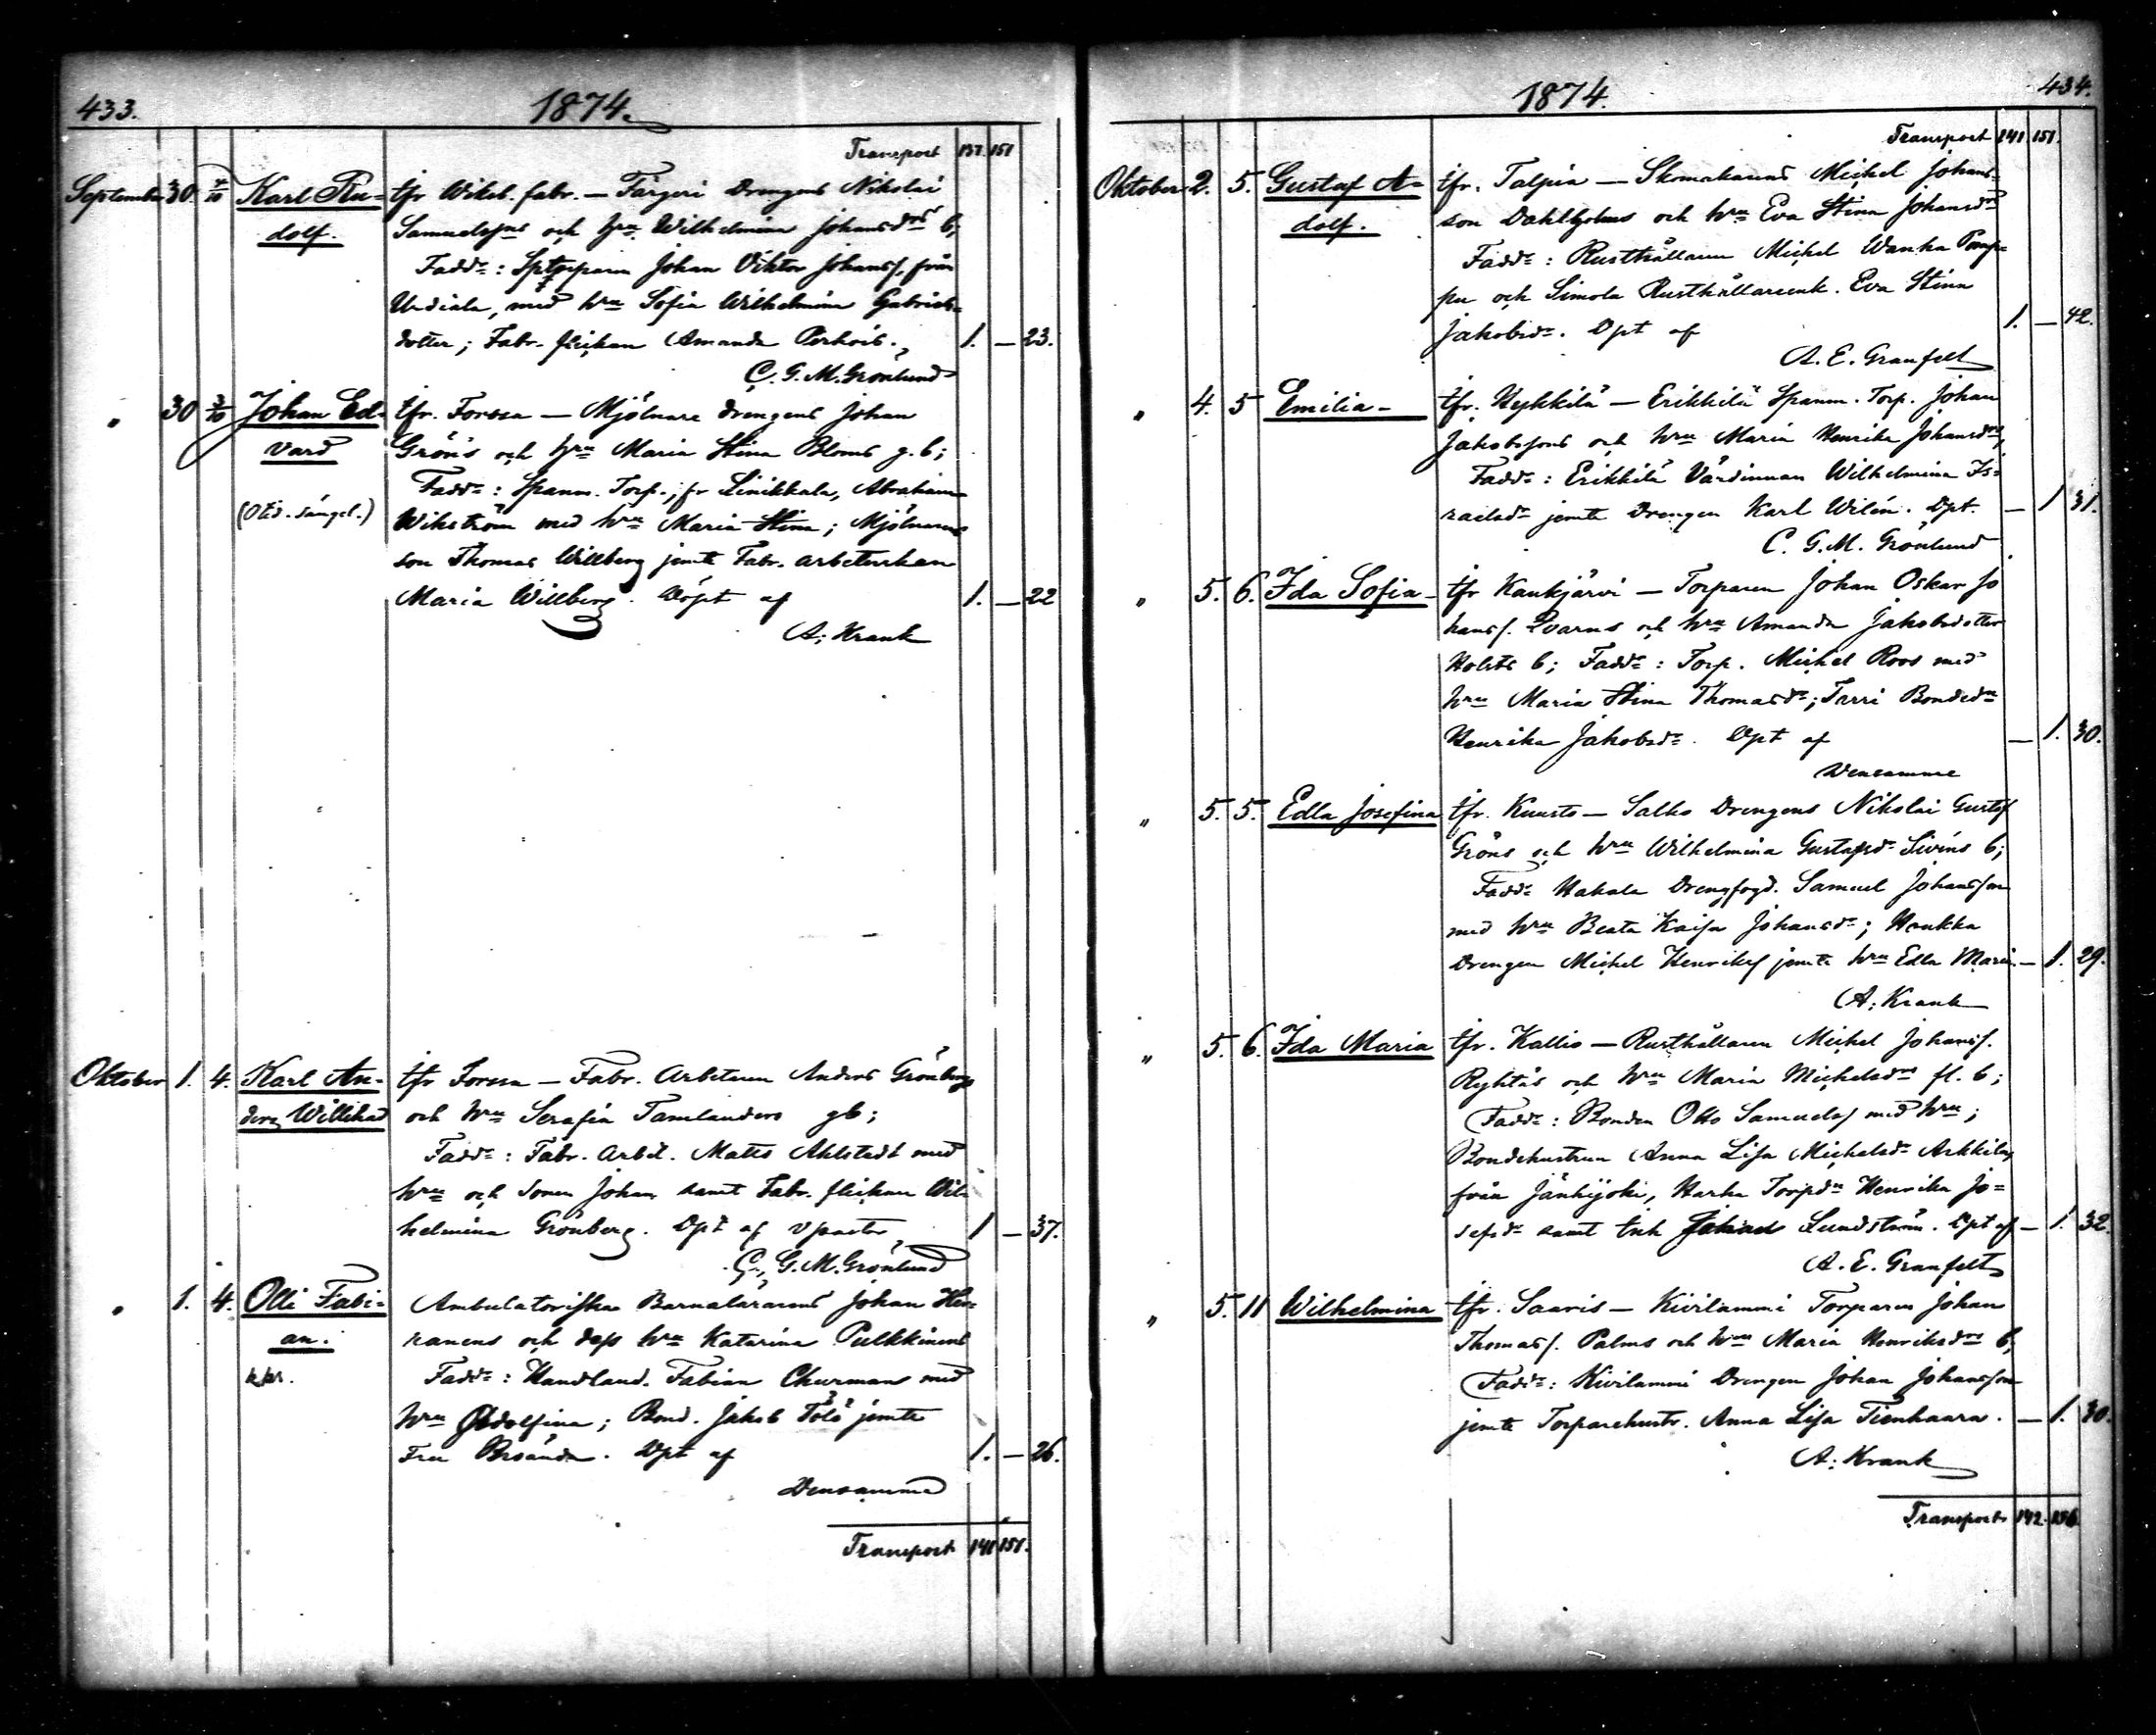 433. 1874.
Transport 137. 151
September 30. 4/10 Karl Ru- tfr Wiksb. fabr. — Färgeri Drengens Nikolai
dolf. Samuelssons och hru Wilhelmina Johansdrs b;
Fadd: Johan Viktor Johanss. från
Urdiala, med hru Sofia Wilhelmina Gabriels-
dotter; Fabr. flickan Amanda 1. — 23.
C. G. M. Grönlund
" 30 3/10 Johan Ed- tfr. Forssa — Mjölnare drengens Johan
vard Gröns och hru Maria Stina Bloms g. b;
Fadd: Spanm. Torp., fr Linikkala, Abraham
Wikström med hru Maria Stina; Mjölnarens
son Thomas Willberg jemte Fabr. arbeterskan
Maria Willberg. Döpt af 1. — 22
A; Krank
Oktober 1. 4. Karl An- tfr Forssa — Fabr. Arbetaren Anders Grönbergs
ders Willehad och hru Serafia Tamlanders gb;
Fadd: Fabr. Arbet. Matts Ahlstedt med
hru och sonen Johan samt Fabr. flickan Wil-
helmina Grönberg. Dpt af vpastor 1 — 37.
C. G. M. Grönlund
" 1. 4. Olli Fabi- Ambulatoriska Barnalärarens Johan
an. ranens och dess hru Katarina Pulkkinens
Fadd: Handland. Fabian Churman med
hru Adolfina; Bond. Jakob Tölö jemte
Fru Dpt af 1. — 26.
Densamme
Transport 141 151.
1874. 434.
Transport 141 151.
Oktober 2. 5. Gustaf A- tfr. Talpia — Skomakarens Michel Johans-
dolf. son Dahlholms och hru Eva Stina Johansdrs
Fadd: Rusthållaren Michel Wanha Pomp-
pu och Simola Rusthållareenk. Eva Stina
Jakobsdr. Dpt af 1. — 42.
A. E. Granfelt
" 4. 5 Emilia — tfr. Hykkilä — Erikkilä Spanm. Torp. Johan
Jakobssons och hru Maria Henrika Johansdrs
Fadd: Erikkilä Värdinnan Wilhelmina Is-
raelsdr jemte Drengen Karl Wilén. Dpt. — 1 31.
C. G. M. Grönlund
" 5. 6. Ida Sofia — tfr Kaukjärvi — Torparen Johan Oskar Jo
hanss. Qvarns och hru Amanda Jakobsdotter
Holsts b; Fadd: Torp. Michel Roos med
hru Maria Stina Thomasdr; Tarri Bondedn
Henrika Jakobsdr. Dpt af — 1. 30.
Densamme
" 5. 5. Edla Josefina tfr. Kuusto — Salko Drengens Nikolai Gustaf
Gröns och hru Wilhelmina Gustafsdr Siréns b;
Fadd: Hakala Drengfogd. Samuel Johansson
med hru Beata Kaisa Johansdr; Haukka
Drengen Michel Henrikss jemte hru Edla Maria. — 1. 29.
A; Krank
" 5. 6. Ida Maria tfr. Kallio — Rusthållaren Michel Johanss.
Ryhtäs och hru Maria Michelsdrs fl. b;
Fadd: Bonden Otto Samuelss med hru;
Bondehustrun Anna Lisa Michelsdr Arkkilas
från Jänhijoki, Harha Torpdn Henrika Jo-
sefsdr samt Enk Lundström. Dpt af — 1. 32.
A. E. Granfelt
" 5. 11 Wilhelmina tfr. Saaris — Kivilammi Torparen Johan
Thomass. Palms och hru Maria Henriksdrs b,
Fadd: Kivilammi Drengen Johan Johansson
jemte Torparehustr. Anna Lisa Tienhaara. — 1. 30.
A. Krank
Transport 142. 156.